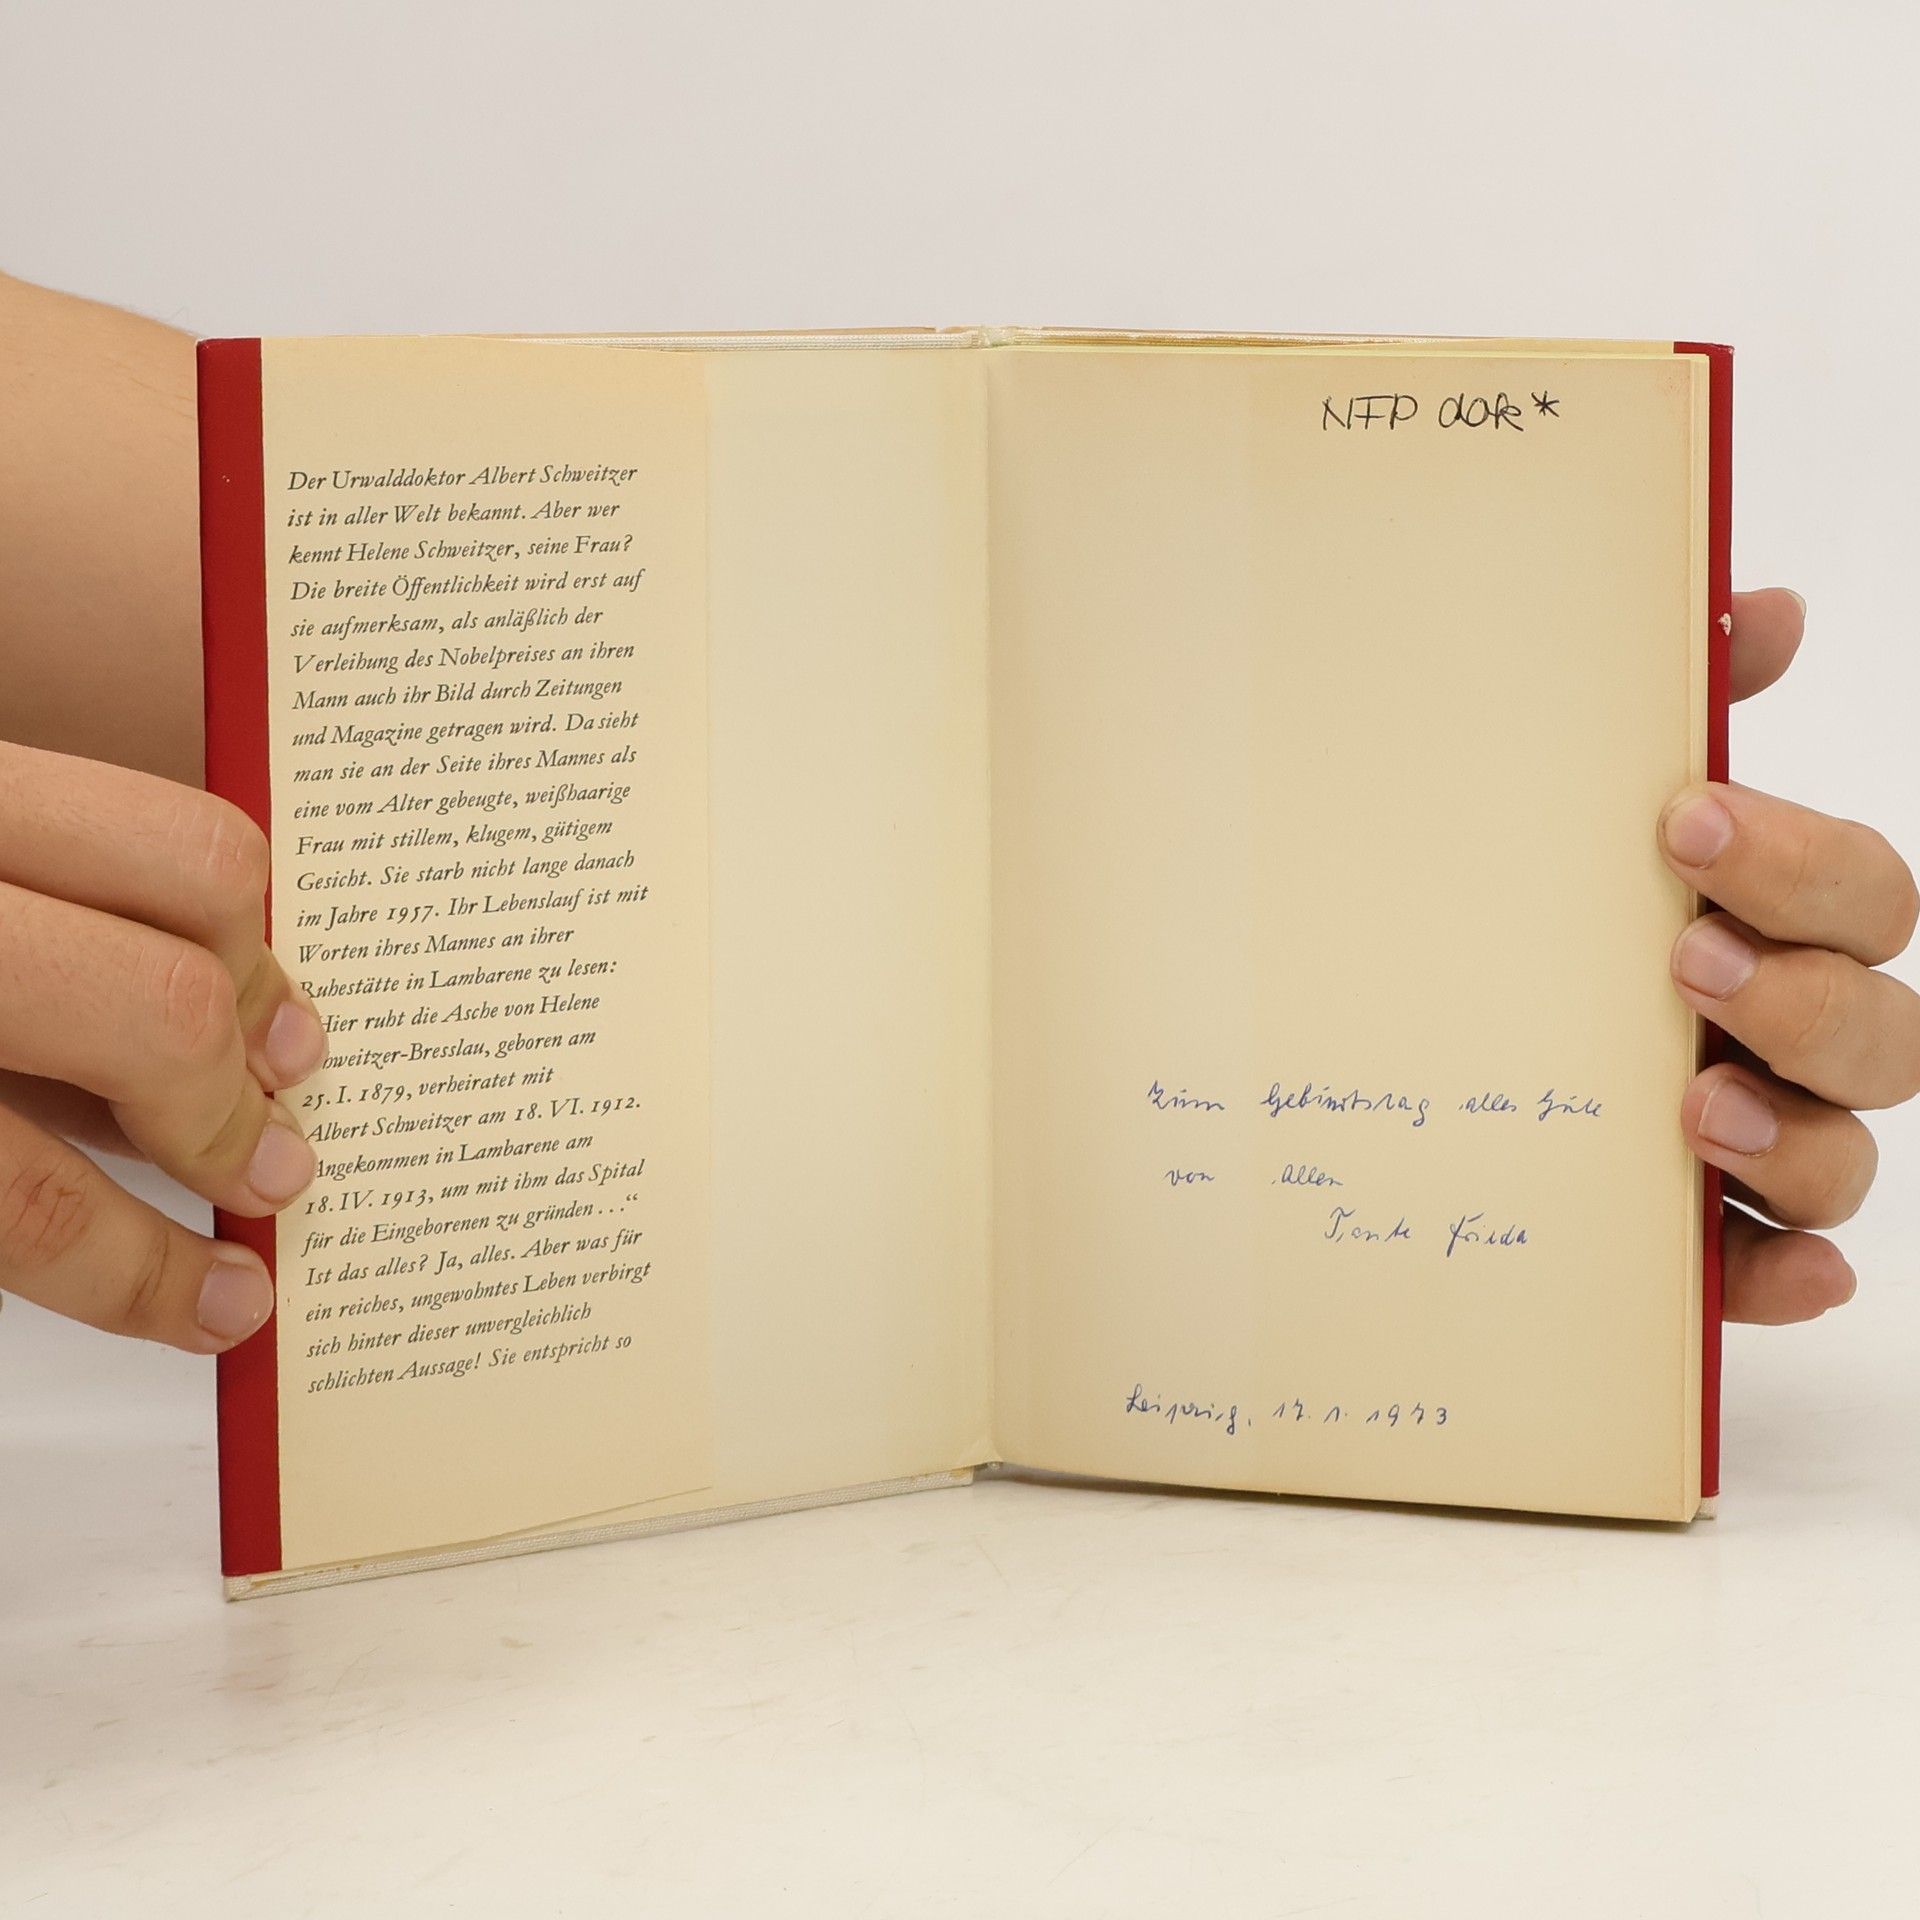 Der Urwalddoktor Albert Schweitzer
ist in aller Welt bekannt. Aber wer
kennt Helene Schweitzer, seine Frau?
Die breite Öffentlichkeit wird erst auf
sie aufmerksam, als anläßlich der
Verleihung des Nobelpreises an ihren
Mann auch ihr Bild durch Zeitungen
und Magazine getragen wird. Da sieht
man sie an der Seite ihres Mannes als
eine vom Alter gebeugte, weißhaarige
Frau mit stillem, klugem, gütigem
Gesicht. Sie starb nicht lange danach
im Jahre 1957. Ihr Lebenslauf ist mit
Worten ihres Mannes an ihrer
Ruhestätte in Lambarene zu lesen:
Hier ruht die Asche von Helene
hweitzer-Bresslau, geboren am
25. I. 1879, verheiratet mit
Albert Schweitzer am 18. VI. 1912.
Angekommen in Lambarene am
18. IV. 1913, um mit ihm das Spital
für die Eingeborenen zu gründen . . .“
Ist das alles? Ja, alles. Aber was für
ein reiches, ungewohntes Leben verbirgt
sich hinter dieser unvergleichlich
schlichten Aussage! Sie entspricht so
NFP dok*
Zum Geburtstag alles Gute
von allen
Tante Frieda
Leipzig, 17. 1. 1973